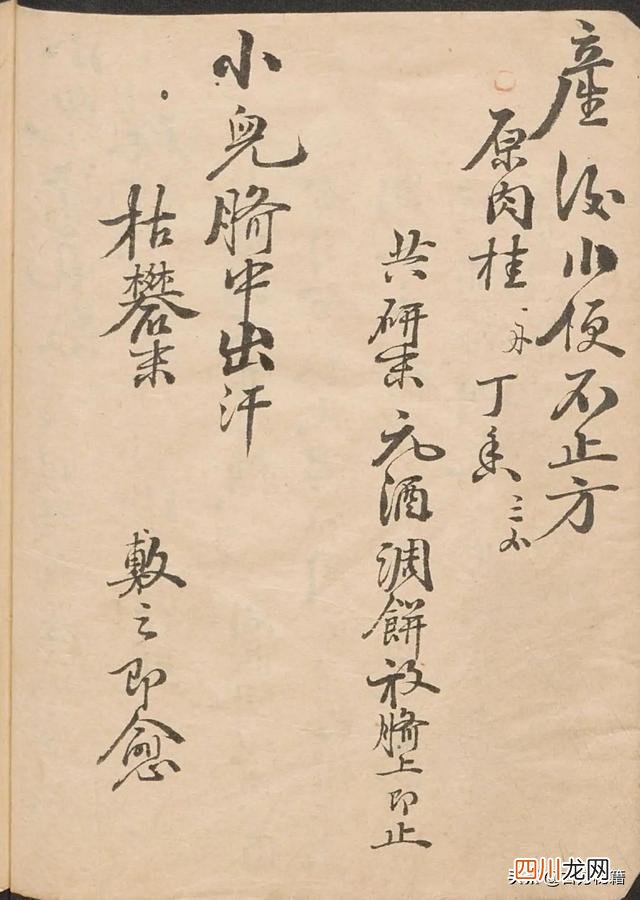 産後小便不止方
原肉桂 丁香
共研末元酒調餅放臍上即止
小兒臍中出汗
枯礬末 敷之即愈
四川龙网